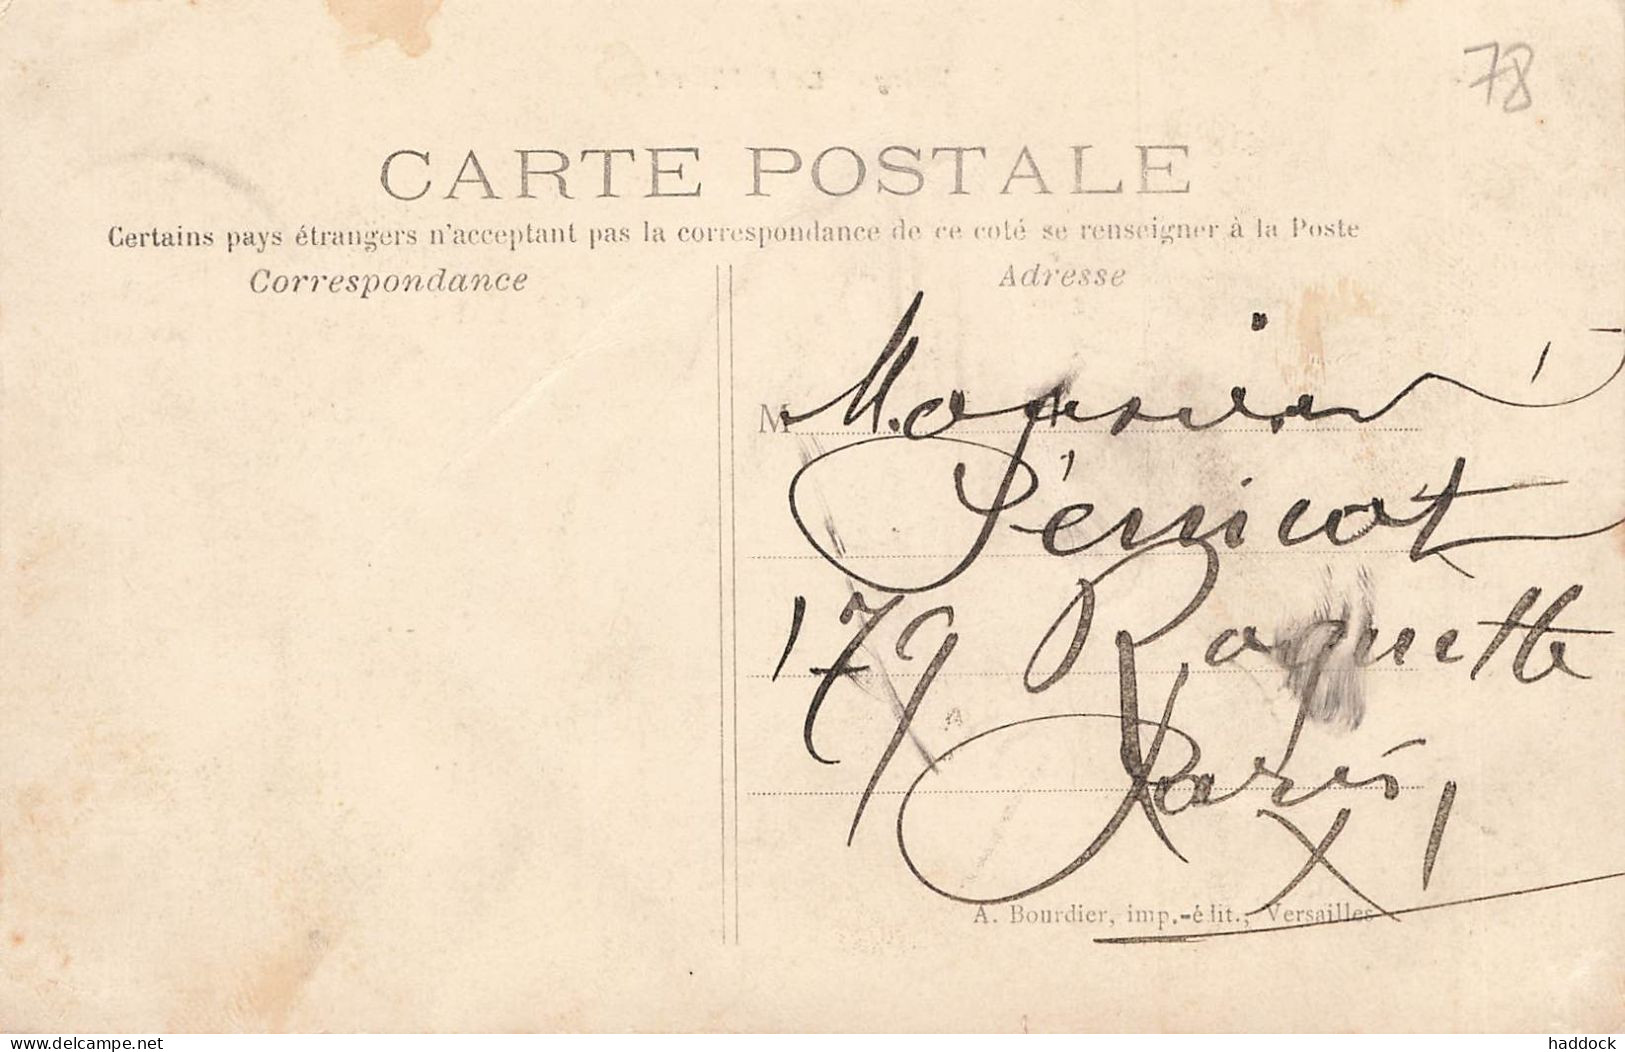 78
CARTE POSTALE
Certains pays étrangers n'acceptant pas la correspondance de ce coté se renseigner à la Poste
Correspondance
Adresse
M Monsieur
Pénicot
179 Roquette
Paris
XI
A. Bourdier, imp.-édit., Versailles
delcampe.net
haddock